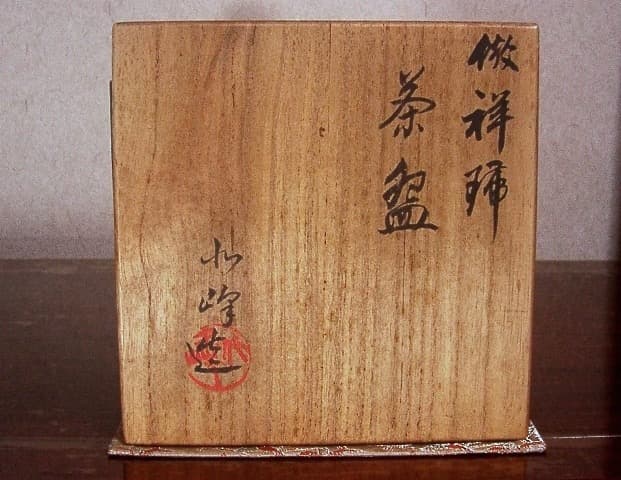 倣祥瑞
茶盌
峰造